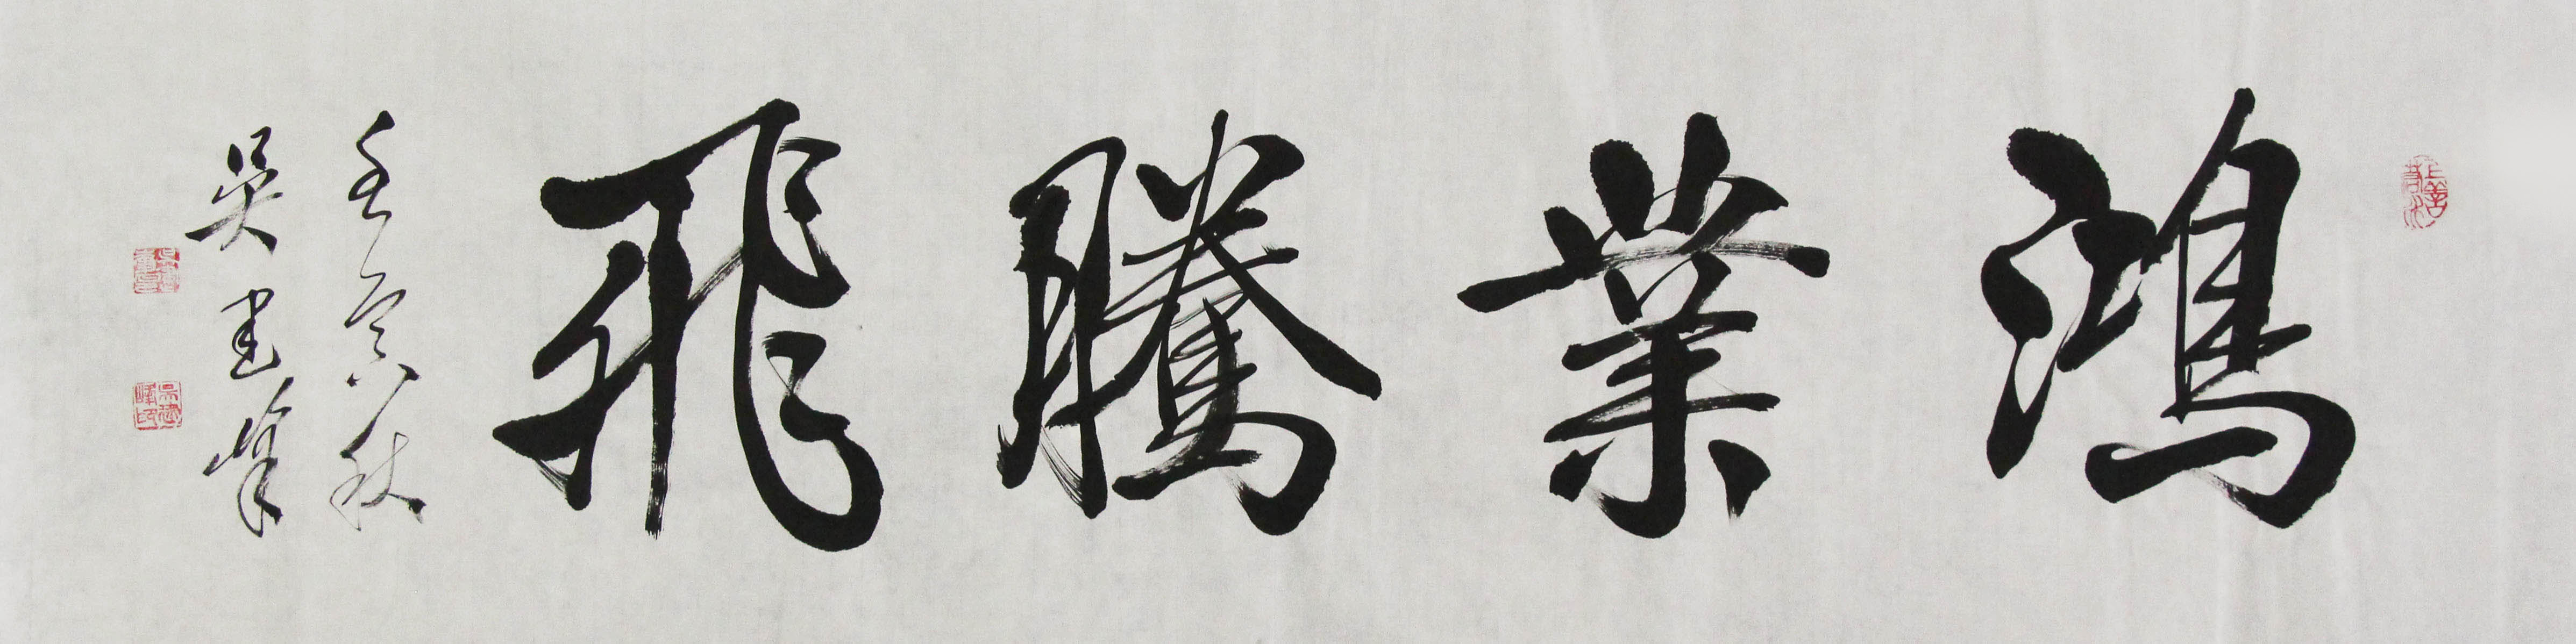 鴻業騰飛
壬寅秋
吴建峰